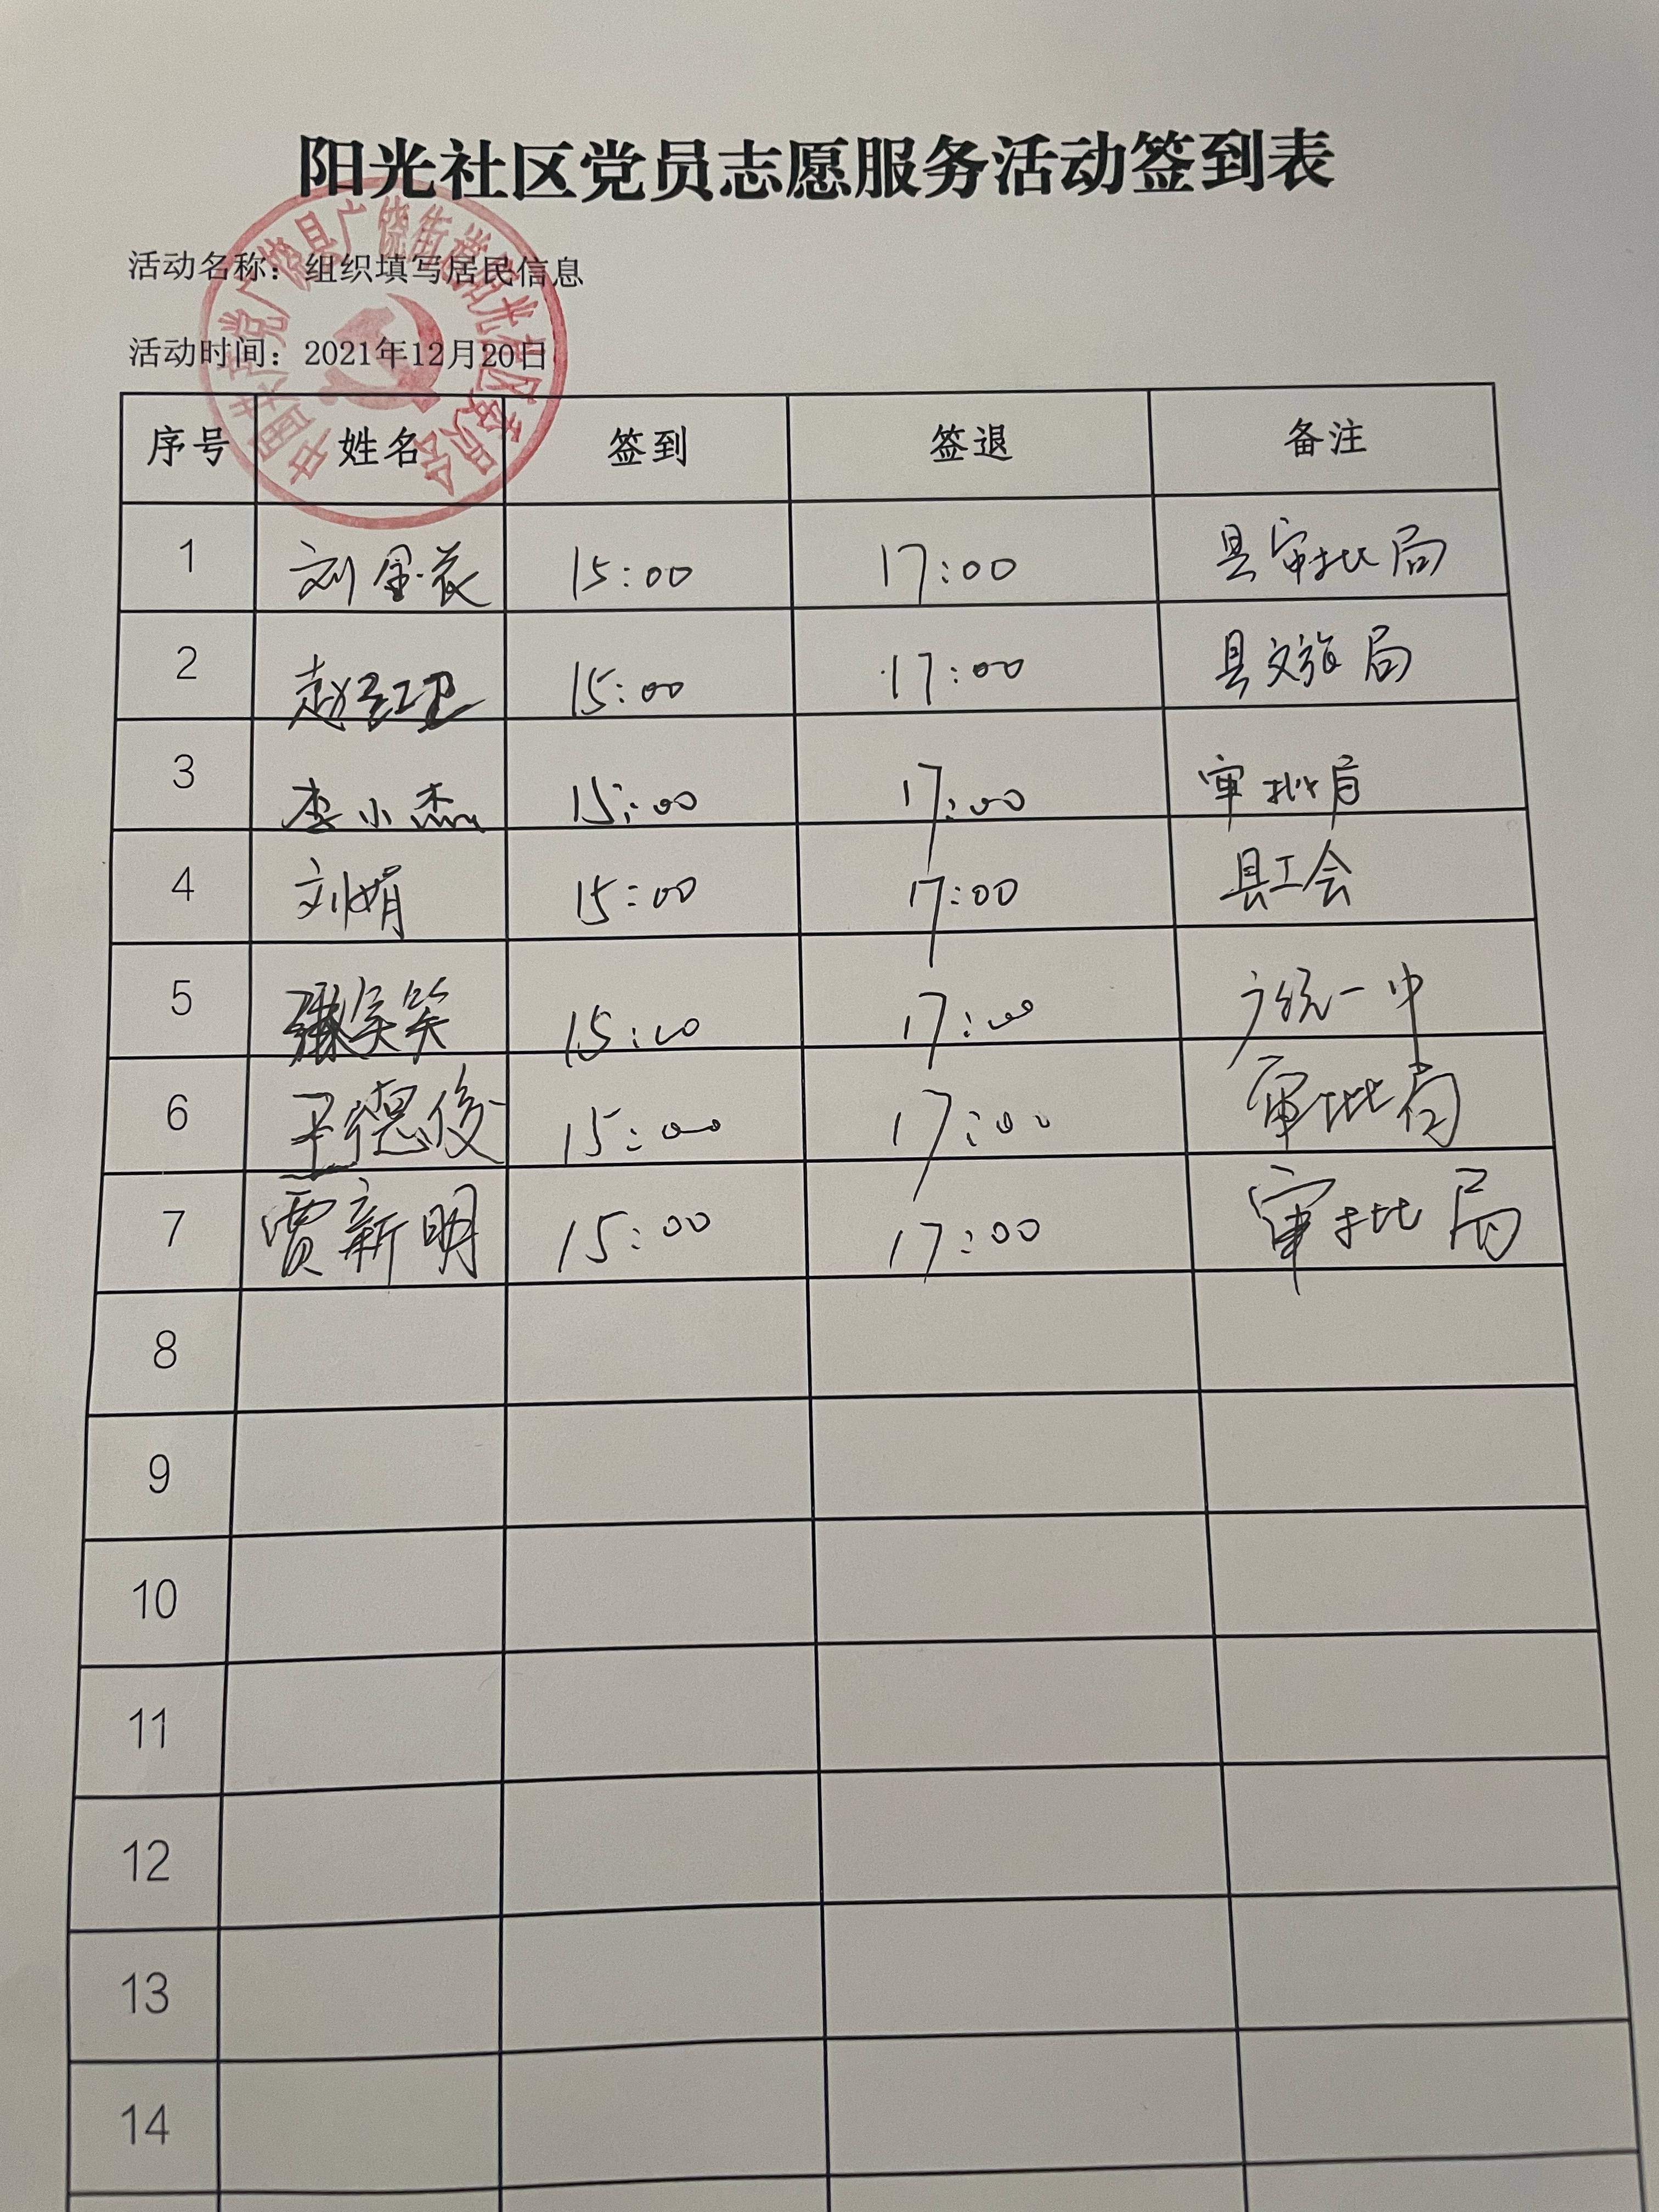 阳光社区党员志愿服务活动签到表
活动名称：组织填写居民信息
活动时间：2021年12月20日
中国共产党广饶县广饶街道阳光社区委员会
序号 姓名 签到 签退 备注
1 刘金花 15:00 17:00 县审批局
2 赵红卫 15:00 17:00 县文旅局
3 李小杰 15:00 17:00 审批局
4 刘娟 15:00 17:00 县工会
5 笑 15:00 17:00 广饶一中
6 德俊 15:00 17:00 审批局
7 贾新明 15:00 17:00 审批局
8
9
10
11
12
13
14